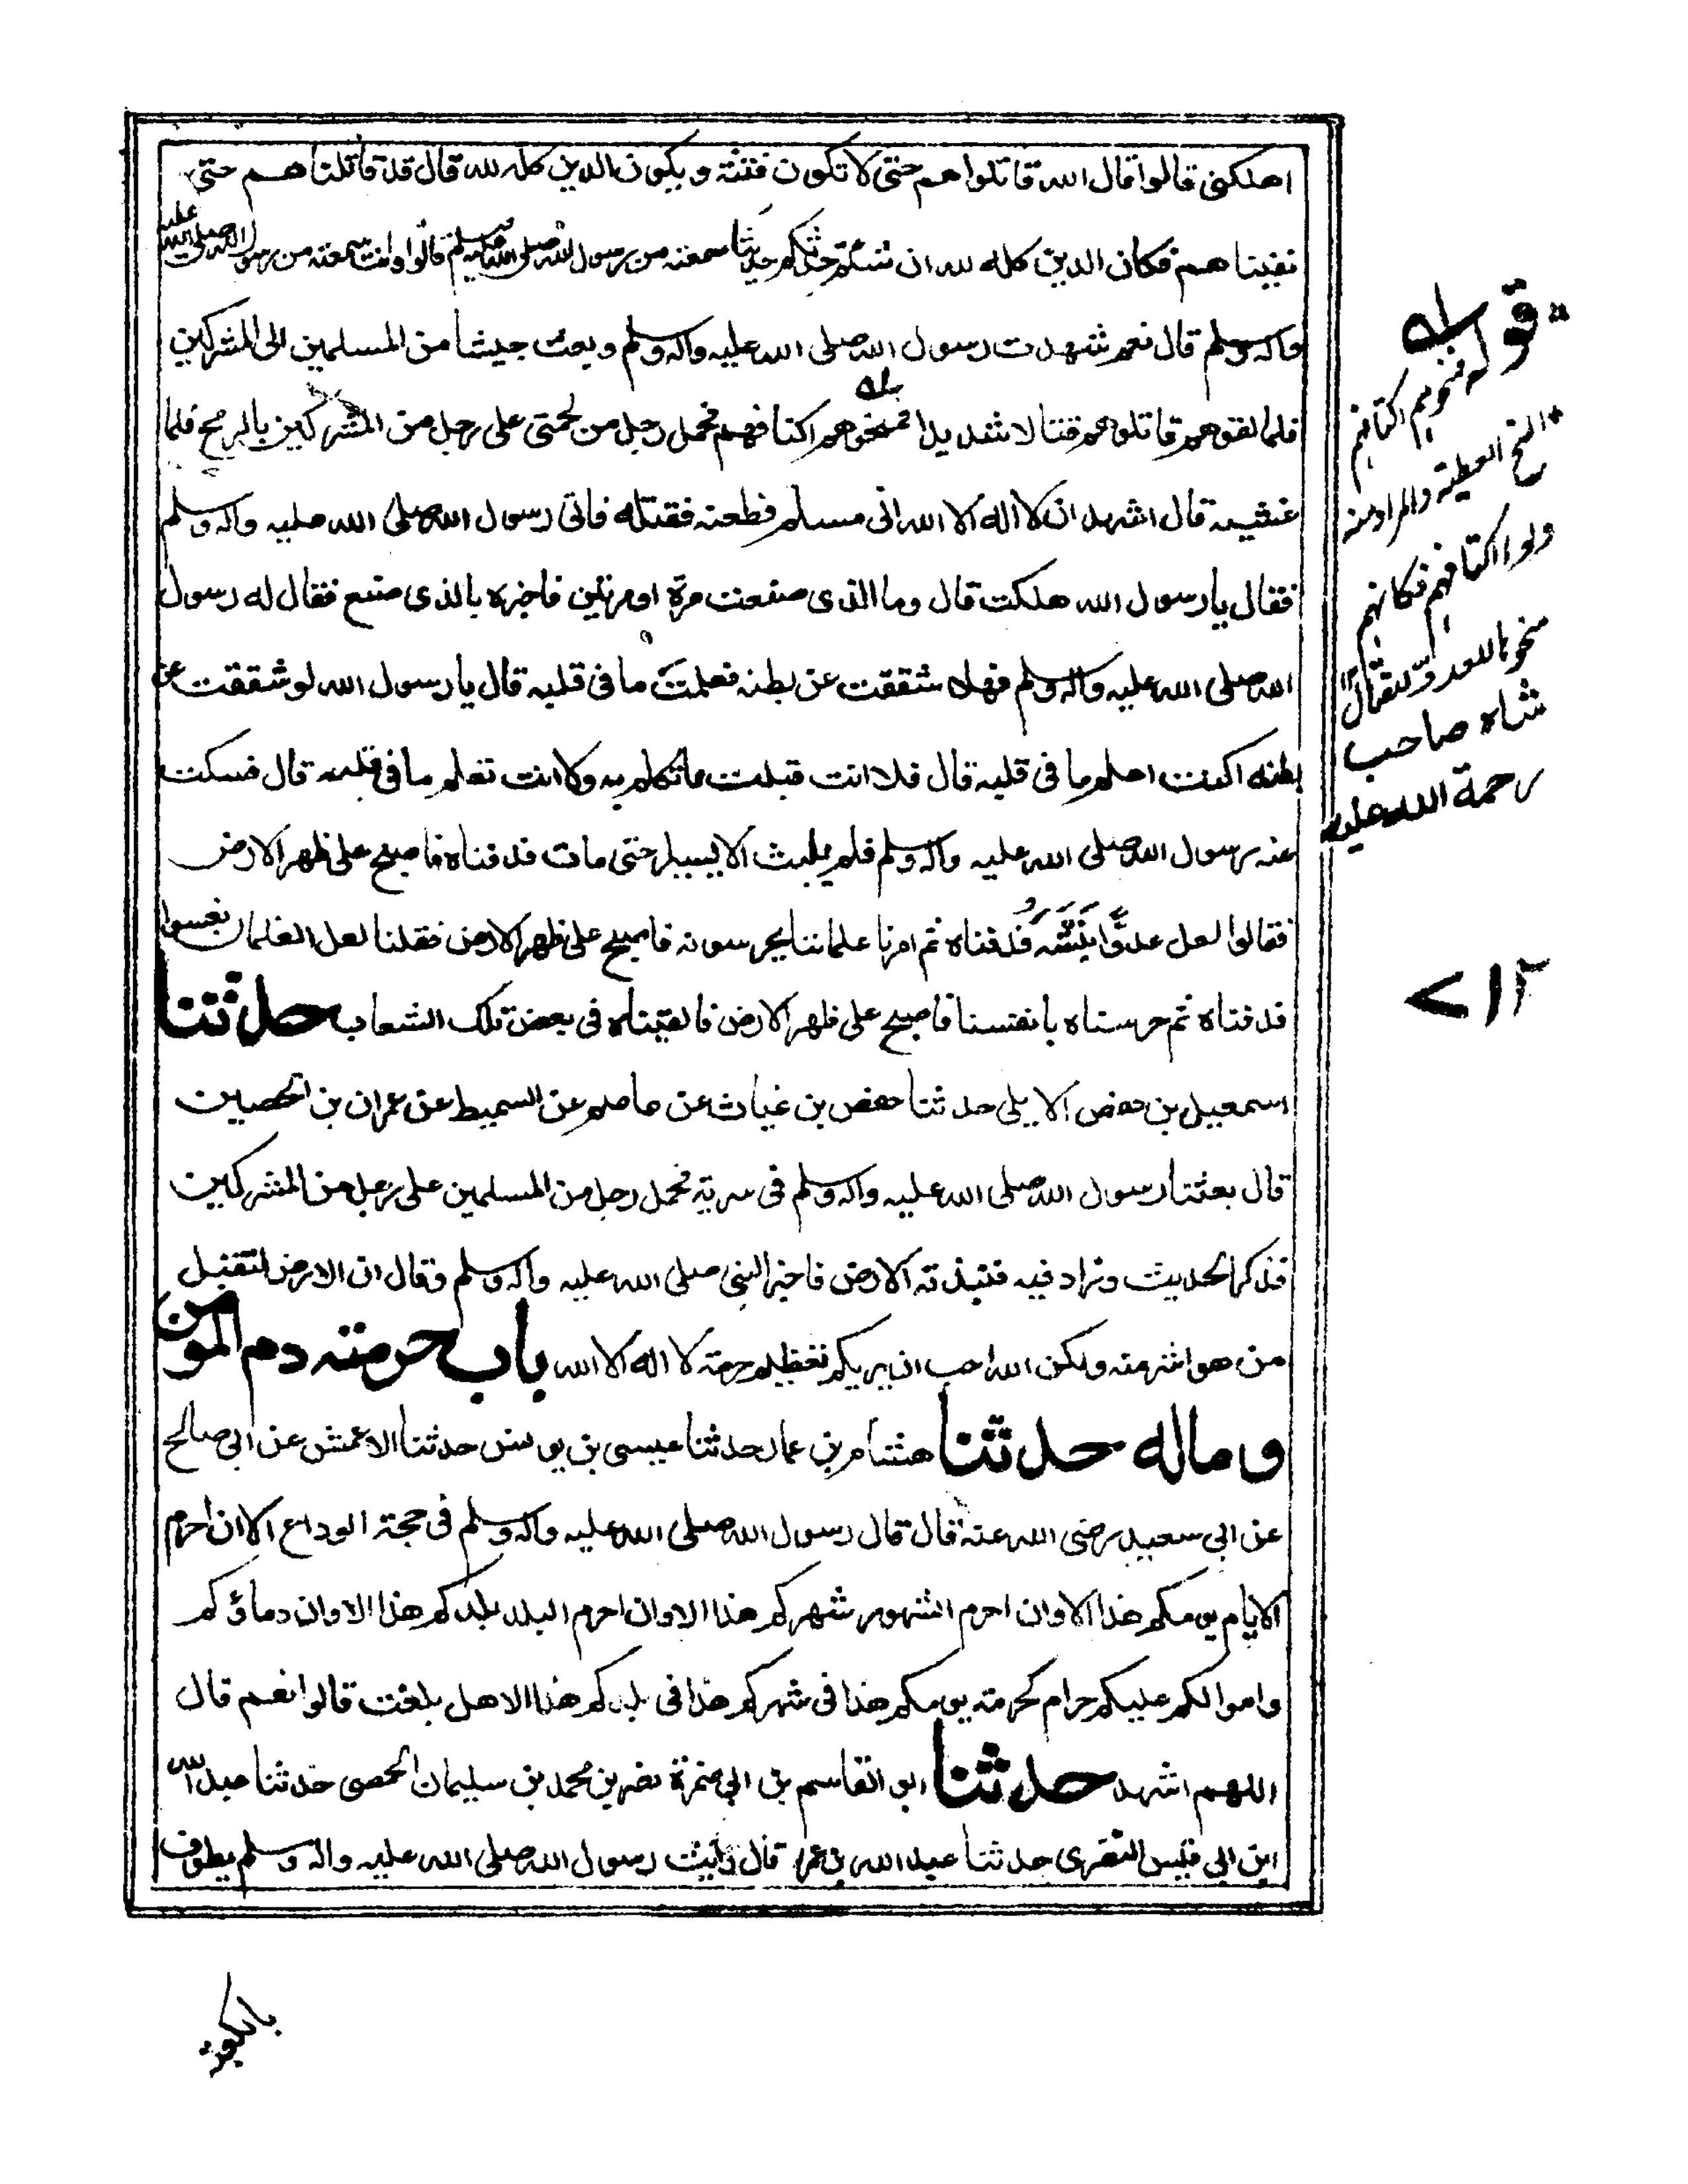 اهلكنى قالوا قال الله قاتلوا هم حتى لا تكون فتنة ويكون الدين كله لله قال قد قاتلنا هم حتى
نفينا هم فكان الدين كله لله ان شئتم حدثتكم حديثا سمعته من رسول الله صلى الله عليه وسلم قالوا وانت سمعته من رسول الله صلى الله عليه
واله وسلم قال نعم شهدت رسول الله صلى الله عليه واله وسلم وبعث جيشا من المسلمين الى المشركين
فلما لقوهم قاتلوهم قتالا شديدا فمنحوهم اكتافهم فحمل رجل من لحمتى على رجل من المشركين بالرمح فلما
غشيه قال اشهد ان لا اله الا الله انى مسلم فطعنه فقتله فاتى رسول الله صلى الله عليه واله وسلم
فقال يا رسول الله هلكت قال وما الذى صنعت مرة او مرتين فاخبره بالذى صنع فقال له رسول
الله صلى الله عليه واله وسلم فهلا شققت عن بطنه فعلمت ما فى قلبه قال يا رسول الله لو شققت عن
بطنه اكنت اعلم ما فى قلبه قال فلا انت قبلت ما تكلم به ولا انت تعلم ما فى قلبه قال فسكت
عنه رسول الله صلى الله عليه واله وسلم فلم يلبث الا يسيرا حتى مات فدفناه فاصبح على ظهر الارض
فقالوا لعل عدوًّا ينبشه فدفناه ثم امرنا غلماننا يحرسونه فاصبح على ظهر الارض فقلنا لعل الغلمان نعسوا
فدفناه ثم حرسناه بانفسنا فاصبح على ظهر الارض فالقيناه فى بعض تلك الشعاب حدثنا
اسمعيل بن حفص الايلى حدثنا حفص بن غياث عن عاصم عن السميط عن عمران بن الحصين
قال بعثنا رسول الله صلى الله عليه واله وسلم فى سرية فحمل رجل من المسلمين على رجل من المشركين
فذكر الحديث وزاد فيه فنبذته الارض فاخبر النبى صلى الله عليه واله وسلم فقال ان الارض لتقبل
من هو اشر منه ولكن الله احب ان يريكم تعظيم حرمة لا اله الا الله باب حرمته دم المومن
وماله حدثنا هشام بن عمار حدثنا عيسى بن يونس حدثنا الاعمش عن ابى صالح
عن ابى سعيد رضى الله عنه قال قال رسول الله صلى الله عليه واله وسلم فى حجة الوداع الا ان احرم
الايام يومكم هذا الا وان احرم الشهور شهركم هذا الا وان احرم البلد بلدكم هذا الا وان دماؤكم
واموالكم عليكم حرام كحرمته يومكم هذا فى شهركم هذا فى بلدكم هذا الا هل بلغت قالوا نعم قال
اللهم اشهد حدثنا ابو القاسم بن ابى ضمرة نصر بن محمد بن سليمان الحمصى حدثنا عبد الله
ابن ابى قيس النصرى حدثنا عبد الله بن عمر قال رايت رسول الله صلى الله عليه واله وسلم يطوف
قوله
فمنحوهم اكتافهم
المنح العطية والمراد منه
ولوا اكتافهم فكانهم
منحوها للعدو للقتال
شاه صاحب
رحمة الله عليه
١٢
بالكعبة